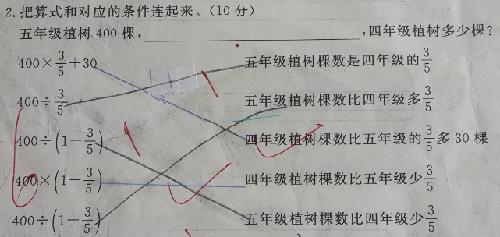 2.把算式和对应的条件连起来。(10分)
五年级植树400棵,________,四年级植树多少棵?
400×3/5+30 五年级植树棵数是四年级的3/5
400÷3/5 五年级植树棵数比四年级多3/5
400÷(1-3/5) 四年级植树棵数比五年级的3/5多30棵
400×(1-3/5) 四年级植树棵数比五年级少3/5
400÷(1-3/5) 五年级植树棵数比四年级少3/5